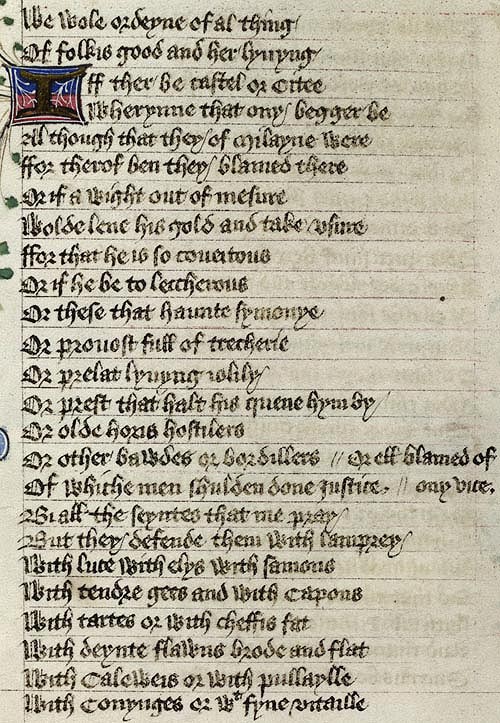 We wole ordeyne of al thing
Of folkis good and her lyuyng
Iff ther be castel or citee
Wherynne that ony begger be
All though that they of Milayne were
ffor therof ben they blamed there
Or if a wight out of mesure
Wolde lene his gold and take vsure
ffor that he is so coueitous
Or if he be to leccherous
Or these that haunte symonye
Or prouost full of trecherie
Or prelat lyuyng iolily
Or prest that halt his quene hym by
Or olde horis hostilers
Or other bawdes or bordillers // Or ell blamed of
Of whiche men shulden done Iustice. // ony vice.
Bi all the seyntes that me pray
But they defende them with lamprey
With luce with elys with samons
With tendre gees and with Capons
With tartes or with cheffis fat
With deynte flawns brode and flat
With Caleweis or with pullaylle
With Conynges or wt fyne vitaille